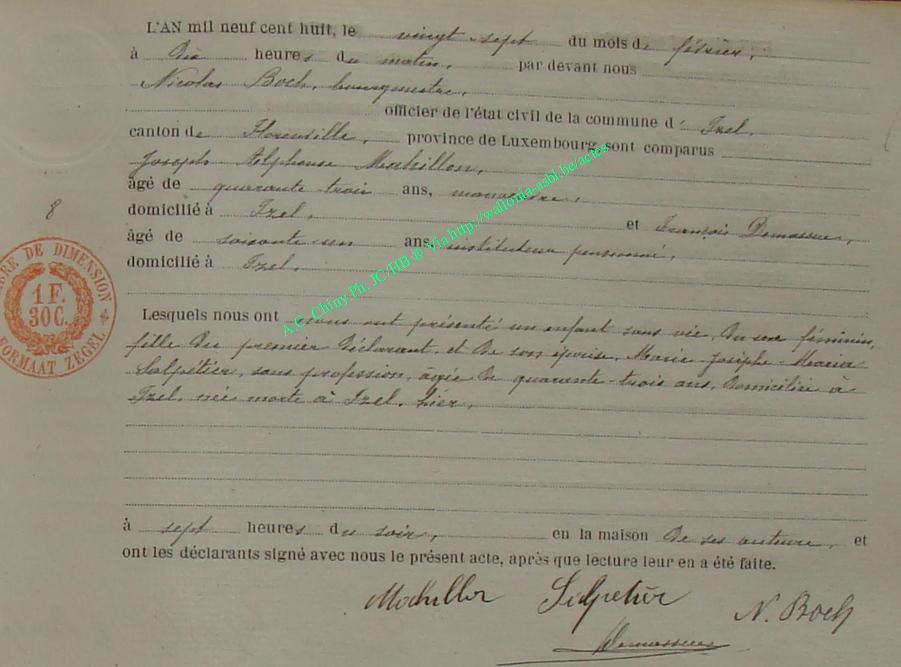 L'AN mil neuf cent huit, le vingt-sept du mois de février,
à dix heures du matin, par devant nous
Nicolas Boch, bourgmestre,
officier de l'état civil de la commune d'Izel,
canton de Florenville, province de Luxembourg, sont comparus
Joseph Alphonse Machillon,
âgé de quarante-trois ans, manœuvre,
domicilié à Izel, et François Demasseure,
âgé de soixante-un ans, instituteur pensionné,
domicilié à Izel.
Lesquels nous ont nous ont présenté un enfant sans vie, du sexe féminin,
fille du premier déclarant, et de son épouse, Marie-Josèphe-Maria
Salpétier, sans profession, âgée de quarante-trois ans, domiciliée à
Izel, née morte à Izel, hier,
à sept heures du soir, en la maison de ses auteurs, et
ont les déclarants signé avec nous le présent acte, après que lecture leur en a été faite.
N. Boch
8
TIMBRE DE DIMENSION
1 F.
30 C.
FORMAAT ZEGEL
A.C. Chiny-Ph. JC/HB @ Via http://wallonia-asbl.be/actes